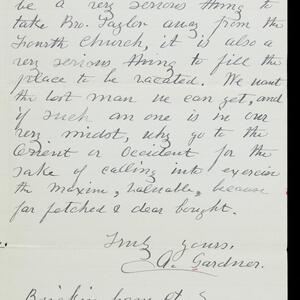 be a very serious thing to
take Bro. Taylor away from the
Fourth Church, it is also a
very serious thing to fill the
place to be vacated. We want
the best man we can get, and
if such an one is in our
very midst, why go to the
Orient or Occident for the
sake of calling into exercise
the maxim, valuable, because
far fetched & dear bought.
Truly yours,
A. Gardner.